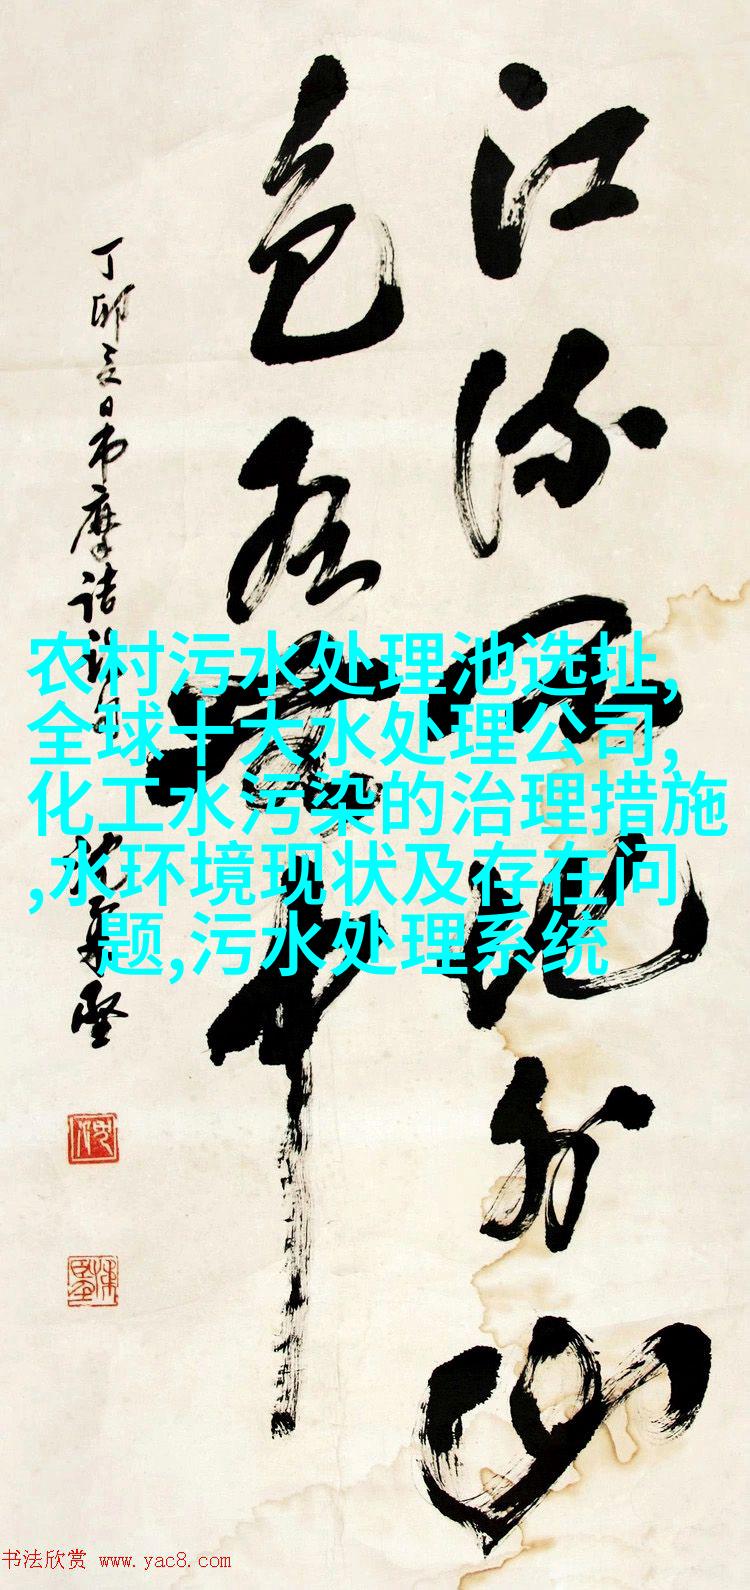 江流天地外山
色有無中
丁卯夏日書摩詰
农村污水处理池选址,
全球十大水处理公司,
化工水污染的治理措施
,水环境现状及存在问
题,污水处理系统
书法欣赏 www.yac8.com